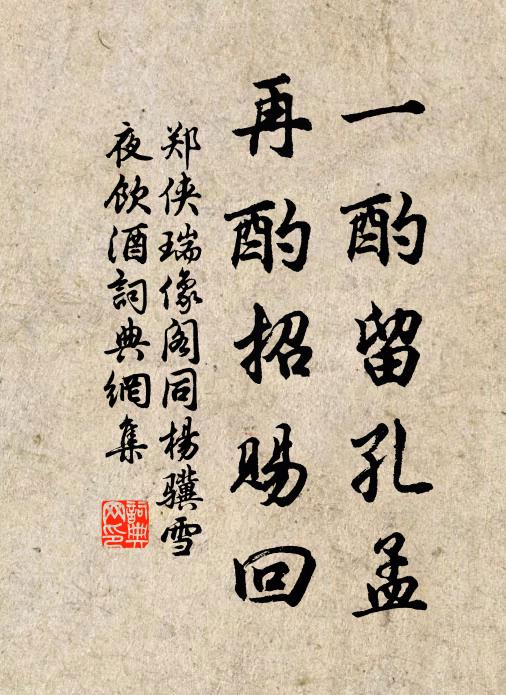 一酌留孔孟
再酌招赐回
郑侠瑞像阁同杨骥雪
夜饮酒詞典網集
詞典網印